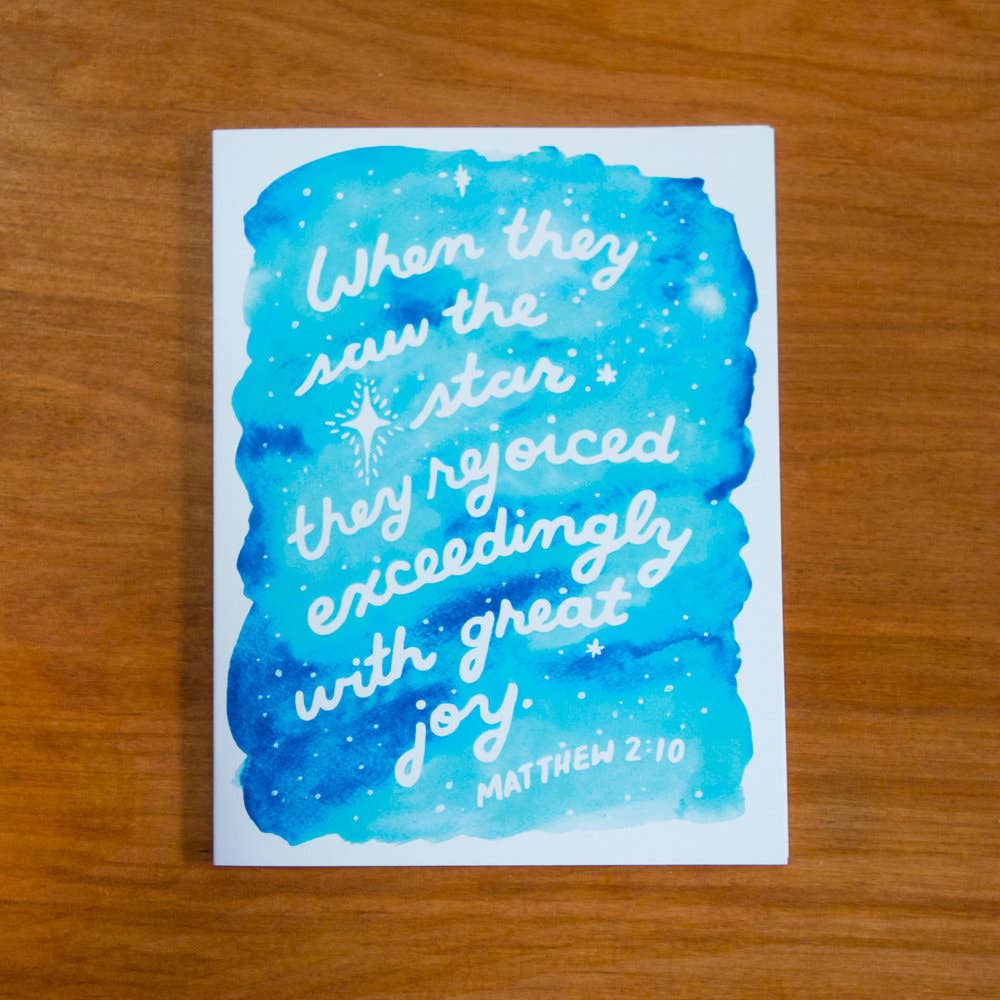 When they
saw the
star
they rejoiced
exceedingly
with great
joy.
MATTHEW 2:10